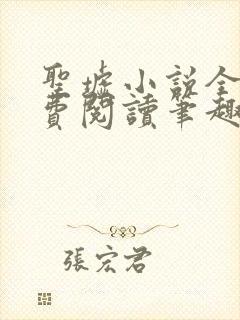 聖墟小說全
費閱讀筆趣
張宏君